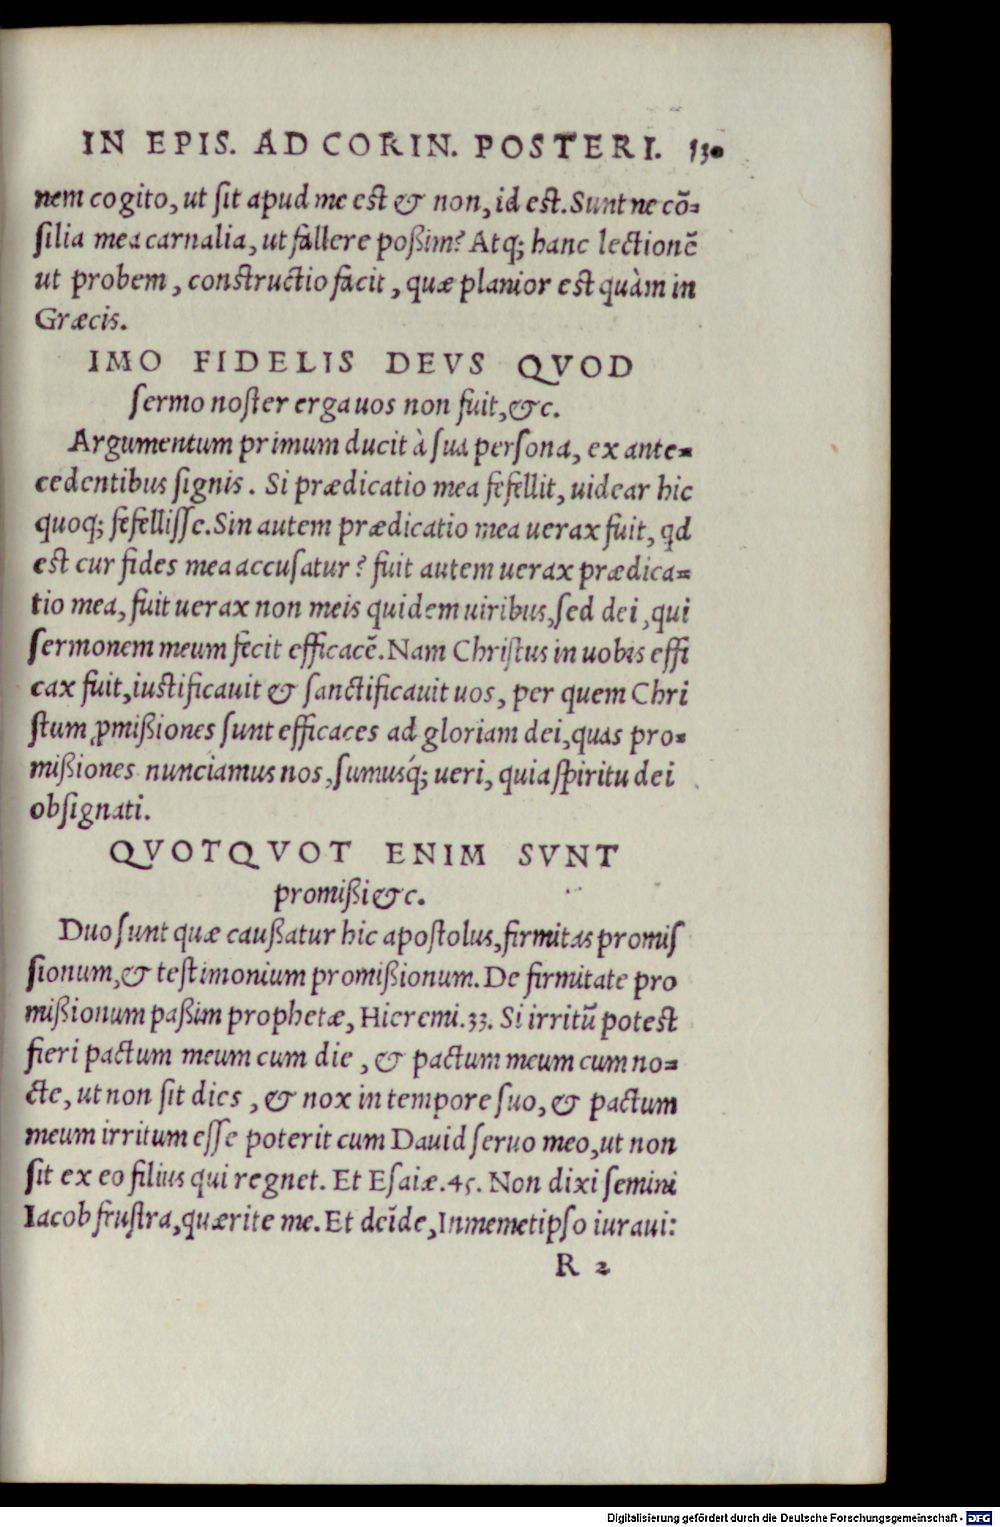 IN EPIS. AD CORIN. POSTERI. 130
nem cogito, ut ſit apud me est & non, id est. Sunt ne cõ-
ſilia mea carnalia, ut fallere poßim? Atq; hanc lectionẽ
ut probem, constructio facit, quæ planior est quàm in
Græcis.
IMO FIDELIS DEVS QVOD
ſermo noſter erga uos non fuit, &c.
Argumentum primum ducit à ſua perſona, ex ante-
cedentibus ſignis. Si prædicatio mea fefellit, uidear hic
quoq; fefelliſſe. Sin autem prædicatio mea uerax fuit, qd
est cur fides mea accuſatur? fuit autem uerax prædica-
tio mea, fuit uerax non meis quidem uiribus, ſed dei, qui
ſermonem meum fecit efficacẽ. Nam Chriſtus in uobis effi
cax fuit, iustificauit & ſanctificauit uos, per quem Chri
ſtum ꝓmißiones ſunt efficaces ad gloriam dei, quas pro-
mißiones nunciamus nos, ſumusq́; ueri, quia ſpiritu dei
obſignati.
QVOTQVOT ENIM SVNT
promißi &c.
Duo ſunt quæ caußatur hic apoſtolus, firmitas promiſ
ſionum, & teſtimonium promißionum. De firmitate pro
mißionum paßim prophetæ, Hieremi.33. Si irritũ potest
fieri pactum meum cum die, & pactum meum cum no-
cte, ut non ſit dies, & nox in tempore ſuo, & pactum
meum irritum eſſe poterit cum Dauid ſeruo meo, ut non
ſit ex eo filius qui regnet. Et Eſaiæ.45. Non dixi ſemini
Iacob fruſtra, quærite me. Et deĩde, In memetipſo iuraui:
R 2
Digitalisierung gefördert durch die Deutsche Forschungsgemeinschaft - DFG